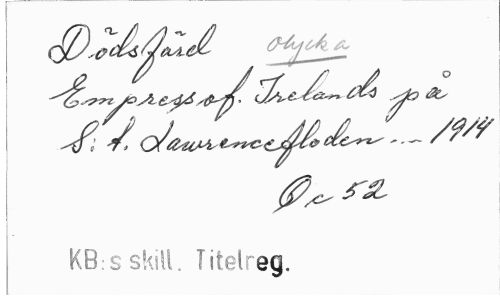 Dödsfärd olycka
Empress of. Irelands på
S:t. Lawrencefloden ... 1914
Oc 52
KB:s skill. Titelreg.